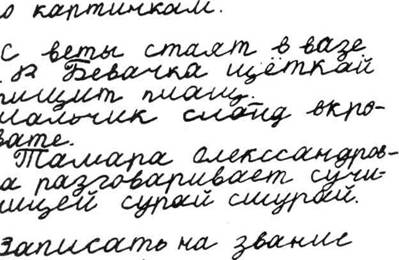 о картинкам.
С веты стаят в вазе
. В Бевачка щёткай
пищит плащ.
мальчик слоид вкро-
вате.
Тамара Олекссандров-
а разговаривает сучи-
ицей сурай сшурай.
Записать на звание